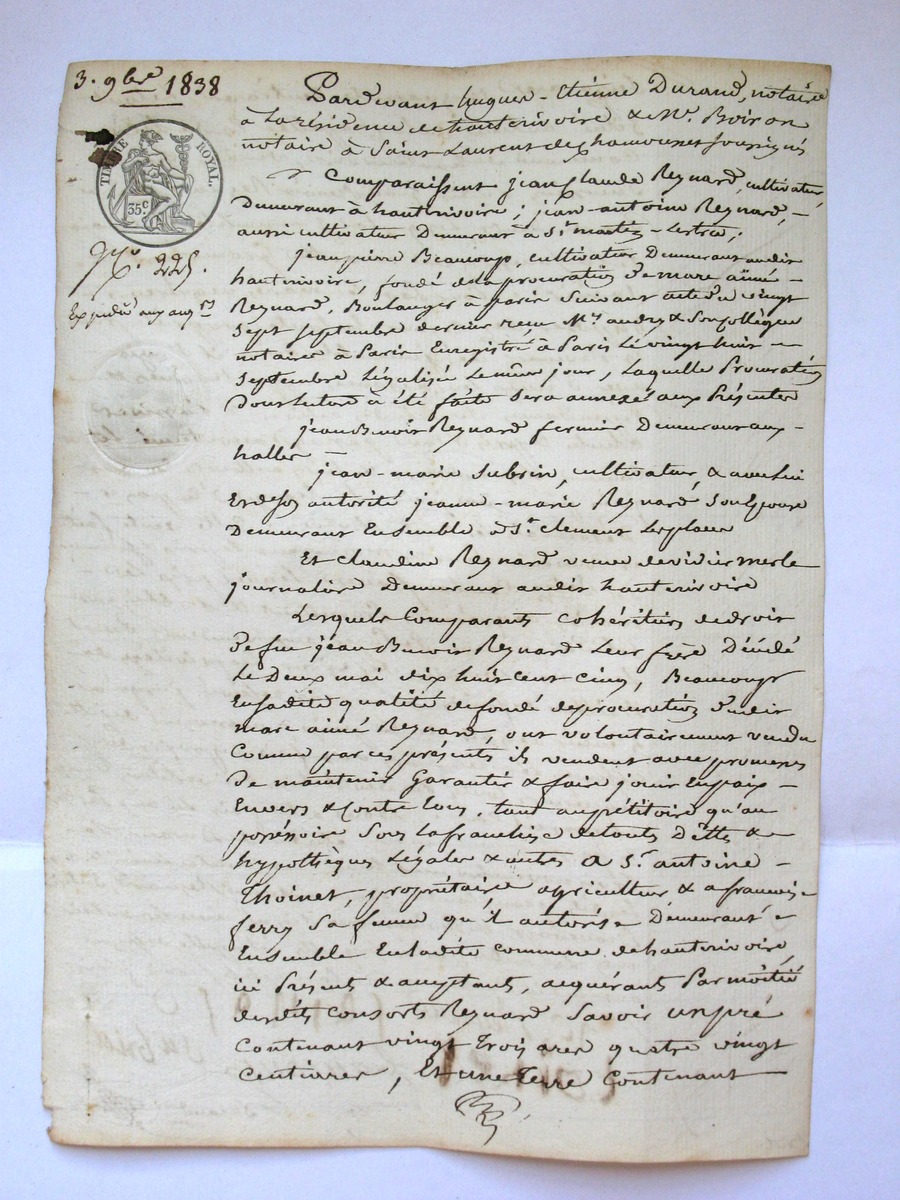 3. 9bre 1838
TIMBRE ROYAL.
35 c
No. 225.
Expédié aux
Pardevant hugues-Etienne Durand, notaire
à la résidence de hauterivoire & Me. Boiron
notaire à Saint Laurent de chamousset soussignés
Comparaissent jean Claude Reynard, cultivateur,
Demeurant à hauterivoire ; jean-antoine Reynard,
aussi cultivateur Demeurant à St. martin-Lestra ;
jean pierre Beaucoup, cultivateur Demeurant audit
hauterivoire, fondé de la procuration De marc aimé
Reynard, Boulanger à paris suivant acte du vingt
Sept Septembre dernier reçu Me. audry & Son Collègue
notaires à Paris Enregistré à Paris Le vingt huit
Septembre Légalisée Le même jour, Laquelle Procuration
Dont Lecture à été faite Sera annexée aux Présentes
jean Benoit Reynard fermier Demeurant aux
halles
jean-marie Subrin, cultivateur, & avec lui
Et de son autorité jeanne-marie Reynard Son Epouse
Demeurant Ensemble à St. clement Les places
Et claudine Reynard veuve de vivier merle
journalière Demeurant audit hauterivoire
Lesquels Comparants cohéritiers de droit
De feu jean Benoit Reynard Leur frère Décédé
Le Deux mai dix huit cent cinq, Beaucoup
En sadite qualité de fondé de procuration dudit
marc aimé Reynard, ont volontairement vendu
Comme par ces présentes ils vendent avec promesse
De maintenir Garantir & faire jouir En paix
Envers & contre tous, tant au pétitoire qu'au
possessoire Sous la franchise de touts Dettes &
hypothèques Légales & autres A Sr. antoine
Thoinet, propriétaire agriculteur & a françoise
ferry Sa femme qu'il autorise Demeurant
Ensemble En ladite commune de hauterivoire,
ici Présents & acceptants, acquérants Par moitié
desdits consorts Reynard Savoir un pré
Contenant vingt Trois ares quatre vingt
Centiares, Et une Terre Contenant